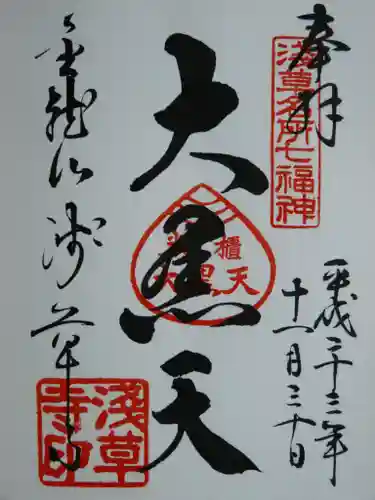 奉拝
浅草名所七福神
平成二十三年
十一月三十日
大黒天
米櫃大黒天
金龍山浅草寺
浅草寺印